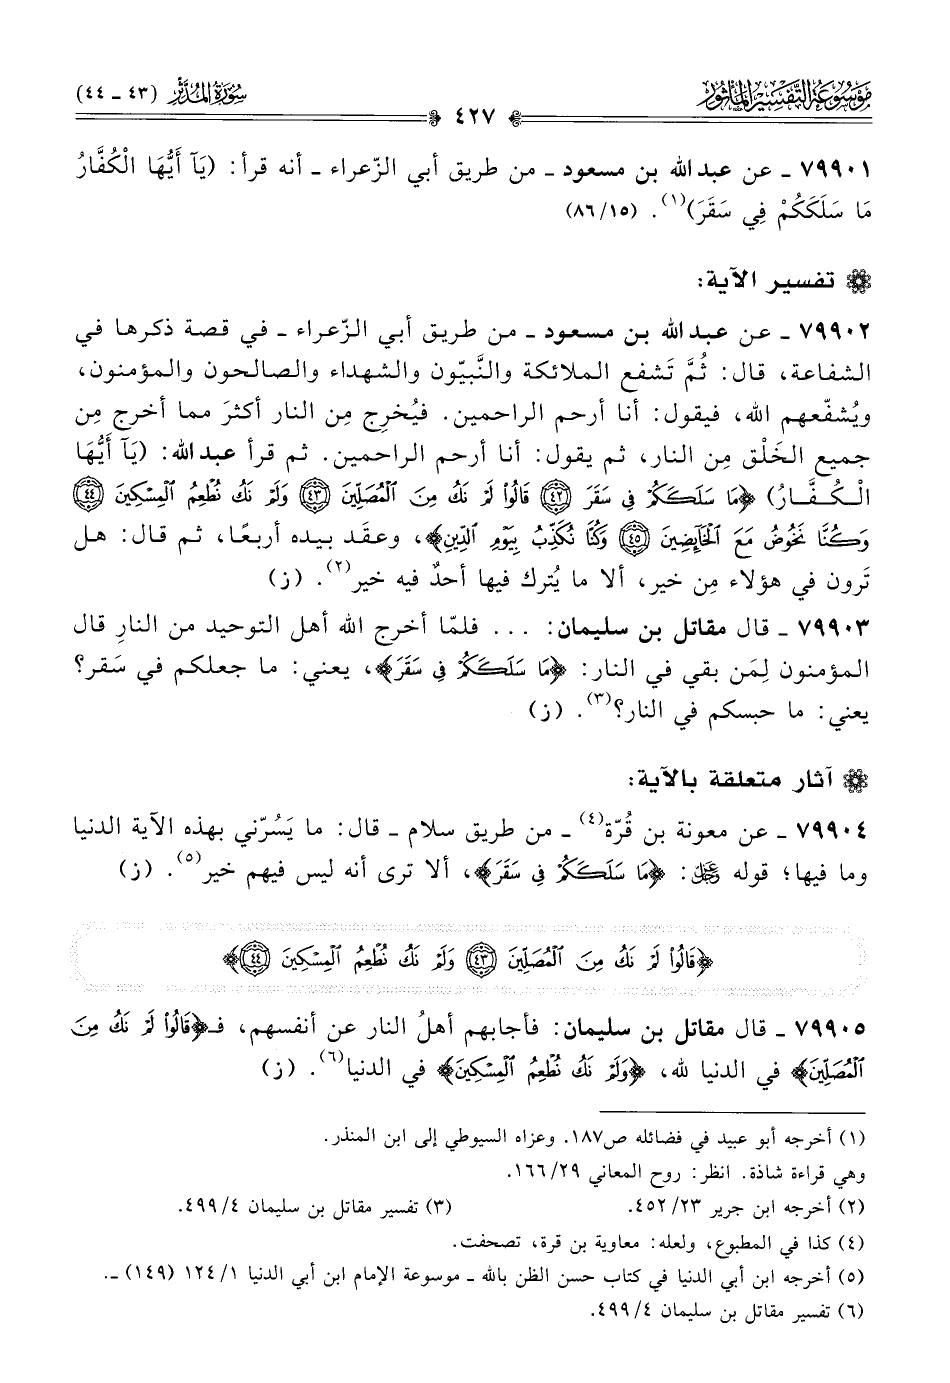 مَوْسُوعَة التَّفْسِير المَأْثُور
سُورَةُ المُدَّثِّر (٤٣ ـ ٤٤)
٤٢٧
٧٩٩٠١ ـ عن عبد الله بن مسعود ـ من طريق أبي الزّعراء ـ أنه قرأ: (يَآ أَيُّهَا الْكُفَّارُ
مَا سَلَكَكُمْ فِي سَقَرَ)(١). (١٥/ ٨٦)
تفسير الآية:
٧٩٩٠٢ ـ عن عبد الله بن مسعود ـ من طريق أبي الزّعراء ـ في قصة ذكرها في
الشفاعة، قال: ثُمَّ تَشفع الملائكة والنَّبيّون والشهداء والصالحون والمؤمنون،
ويُشفّعهم الله، فيقول: أنا أرحم الراحمين. فيُخرِج مِن النار أكثرَ مما أخرج مِن
جميع الخَلْق مِن النار، ثم يقول: أنا أرحم الراحمين. ثم قرأ عبد الله: (يَآ أَيُّهَا
الْكُفَّارُ) ﴿مَا سَلَكَكُمْ فِي سَقَرَ ٤٢ قَالُوا۟ لَمْ نَكُ مِنَ ٱلْمُصَلِّينَ ٤٣ وَلَمْ نَكُ نُطْعِمُ ٱلْمِسْكِينَ ٤٤
وَكُنَّا نَخُوضُ مَعَ ٱلْخَآئِضِينَ ٤٥ وَكُنَّا نُكَذِّبُ بِيَوْمِ ٱلدِّينِ﴾، وعقَد بيده أربعًا، ثم قال: هل
تَرون في هؤلاء مِن خير، ألا ما يُترك فيها أحدٌ فيه خير(٢). (ز)
٧٩٩٠٣ ـ قال مقاتل بن سليمان: ... فلمّا أخرج الله أهل التوحيد من النارِ قال
المؤمنون لِمَن بقي في النار: ﴿مَا سَلَكَكُمْ فِي سَقَرَ﴾، يعني: ما جعلكم في سَقر؟
يعني: ما حبسكم في النار؟(٣). (ز)
آثار متعلقة بالآية:
٧٩٩٠٤ ـ عن معونة بن قُرّة(٤) ـ من طريق سلام ـ قال: ما يَسُرّني بهذه الآية الدنيا
وما فيها؛ قوله عَزَّ وَجَلَّ: ﴿مَا سَلَكَكُمْ فِي سَقَرَ﴾، ألا ترى أنه ليس فيهم خير(٥). (ز)
﴿قَالُوا۟ لَمْ نَكُ مِنَ ٱلْمُصَلِّينَ ٤٣ وَلَمْ نَكُ نُطْعِمُ ٱلْمِسْكِينَ ٤٤﴾
٧٩٩٠٥ ـ قال مقاتل بن سليمان: فأجابهم أهلُ النار عن أنفسهم، فـ﴿قَالُوا۟ لَمْ نَكُ مِنَ
ٱلْمُصَلِّينَ﴾ في الدنيا لله، ﴿وَلَمْ نَكُ نُطْعِمُ ٱلْمِسْكِينَ﴾ في الدنيا(٦). (ز)
(١) أخرجه أبو عبيد في فضائله ص١٨٧. وعزاه السيوطي إلى ابن المنذر.
وهي قراءة شاذة. انظر: روح المعاني ٢٩/ ١٦٦.
(٢) أخرجه ابن جرير ٢٣/ ٤٥٢.
(٣) تفسير مقاتل بن سليمان ٤/ ٤٩٩.
(٤) كذا في المطبوع، ولعله: معاوية بن قرة، تصحفت.
(٥) أخرجه ابن أبي الدنيا في كتاب حسن الظن بالله ـ موسوعة الإمام ابن أبي الدنيا ١/ ١٢٤ (١٤٩) ـ.
(٦) تفسير مقاتل بن سليمان ٤/ ٤٩٩.